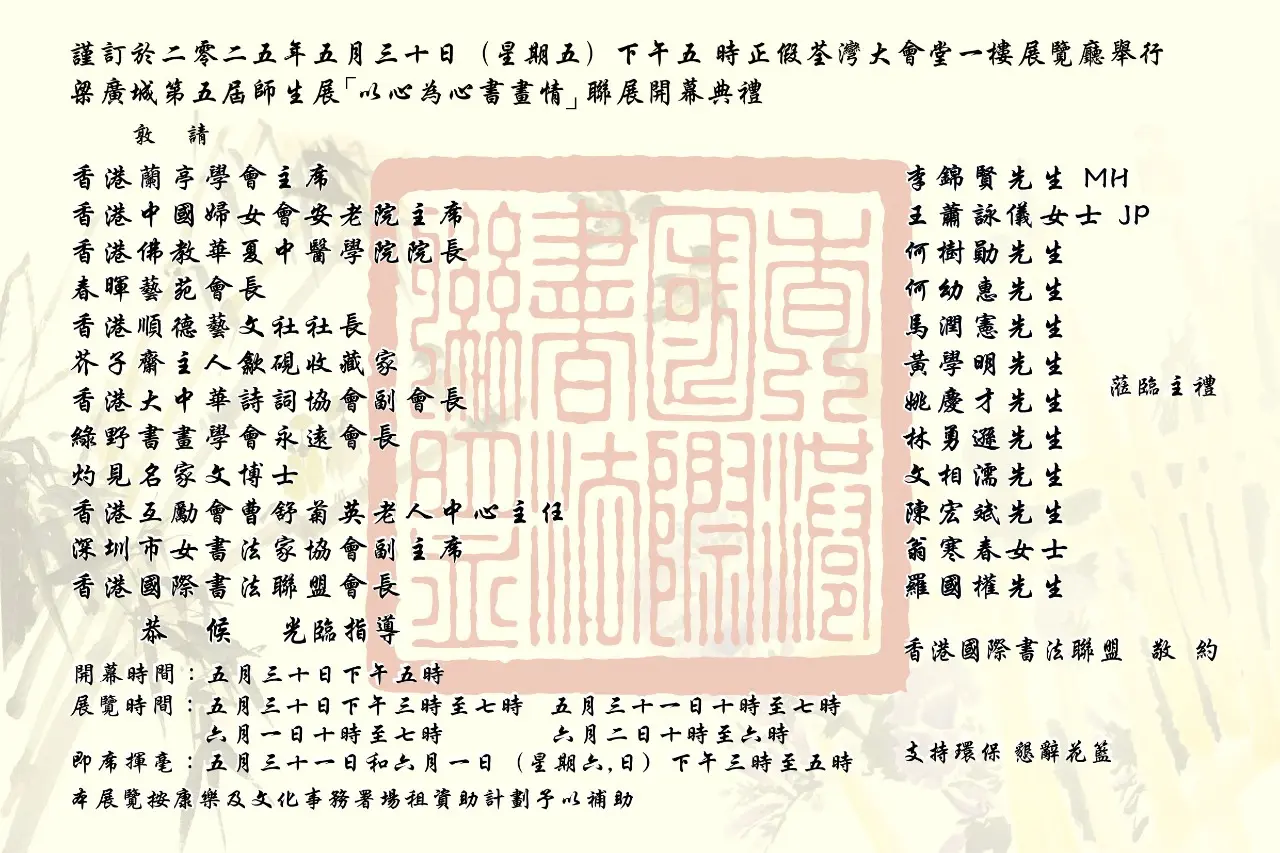 謹訂於二零二五年五月三十日（星期五）下午五 時正假荃灣大會堂一樓展覽廳舉行
梁廣城第五屆師生展「以心為心書畫情」聯展開幕典禮
敦 請
香港蘭亭學會主席 李錦賢先生 MH
香港中國婦女會安老院主席 王蕭詠儀女士 JP
香港佛教華夏中醫學院院長 何樹勛先生
春暉藝苑會長 何幼惠先生
香港順德藝文社社長 馬潤憲先生
芥子齋主人歙硯收藏家 黃學明先生
香港大中華詩詞協會副會長 姚慶才先生
綠野書畫學會永遠會長 林勇遜先生
灼見名家文博士 文相濡先生
香港互勵會曹舒菊英老人中心主任 陳宏斌先生
深圳市女書法家協會副主席 翁寒春女士
香港國際書法聯盟會長 羅國權先生
蒞臨主禮
恭 候 光臨指導
香港國際書法聯盟 敬 約
開幕時間：五月三十日下午五時
展覽時間：五月三十日下午三時至七時 五月三十一日十時至七時
六月一日十時至七時 六月二日十時至六時
即席揮毫：五月三十一日和六月一日（星期六,日）下午三時至五時
支持環保 懇辭花籃
本展覽按康樂及文化事務署場租資助計劃予以補助
香港國際書法聯盟印